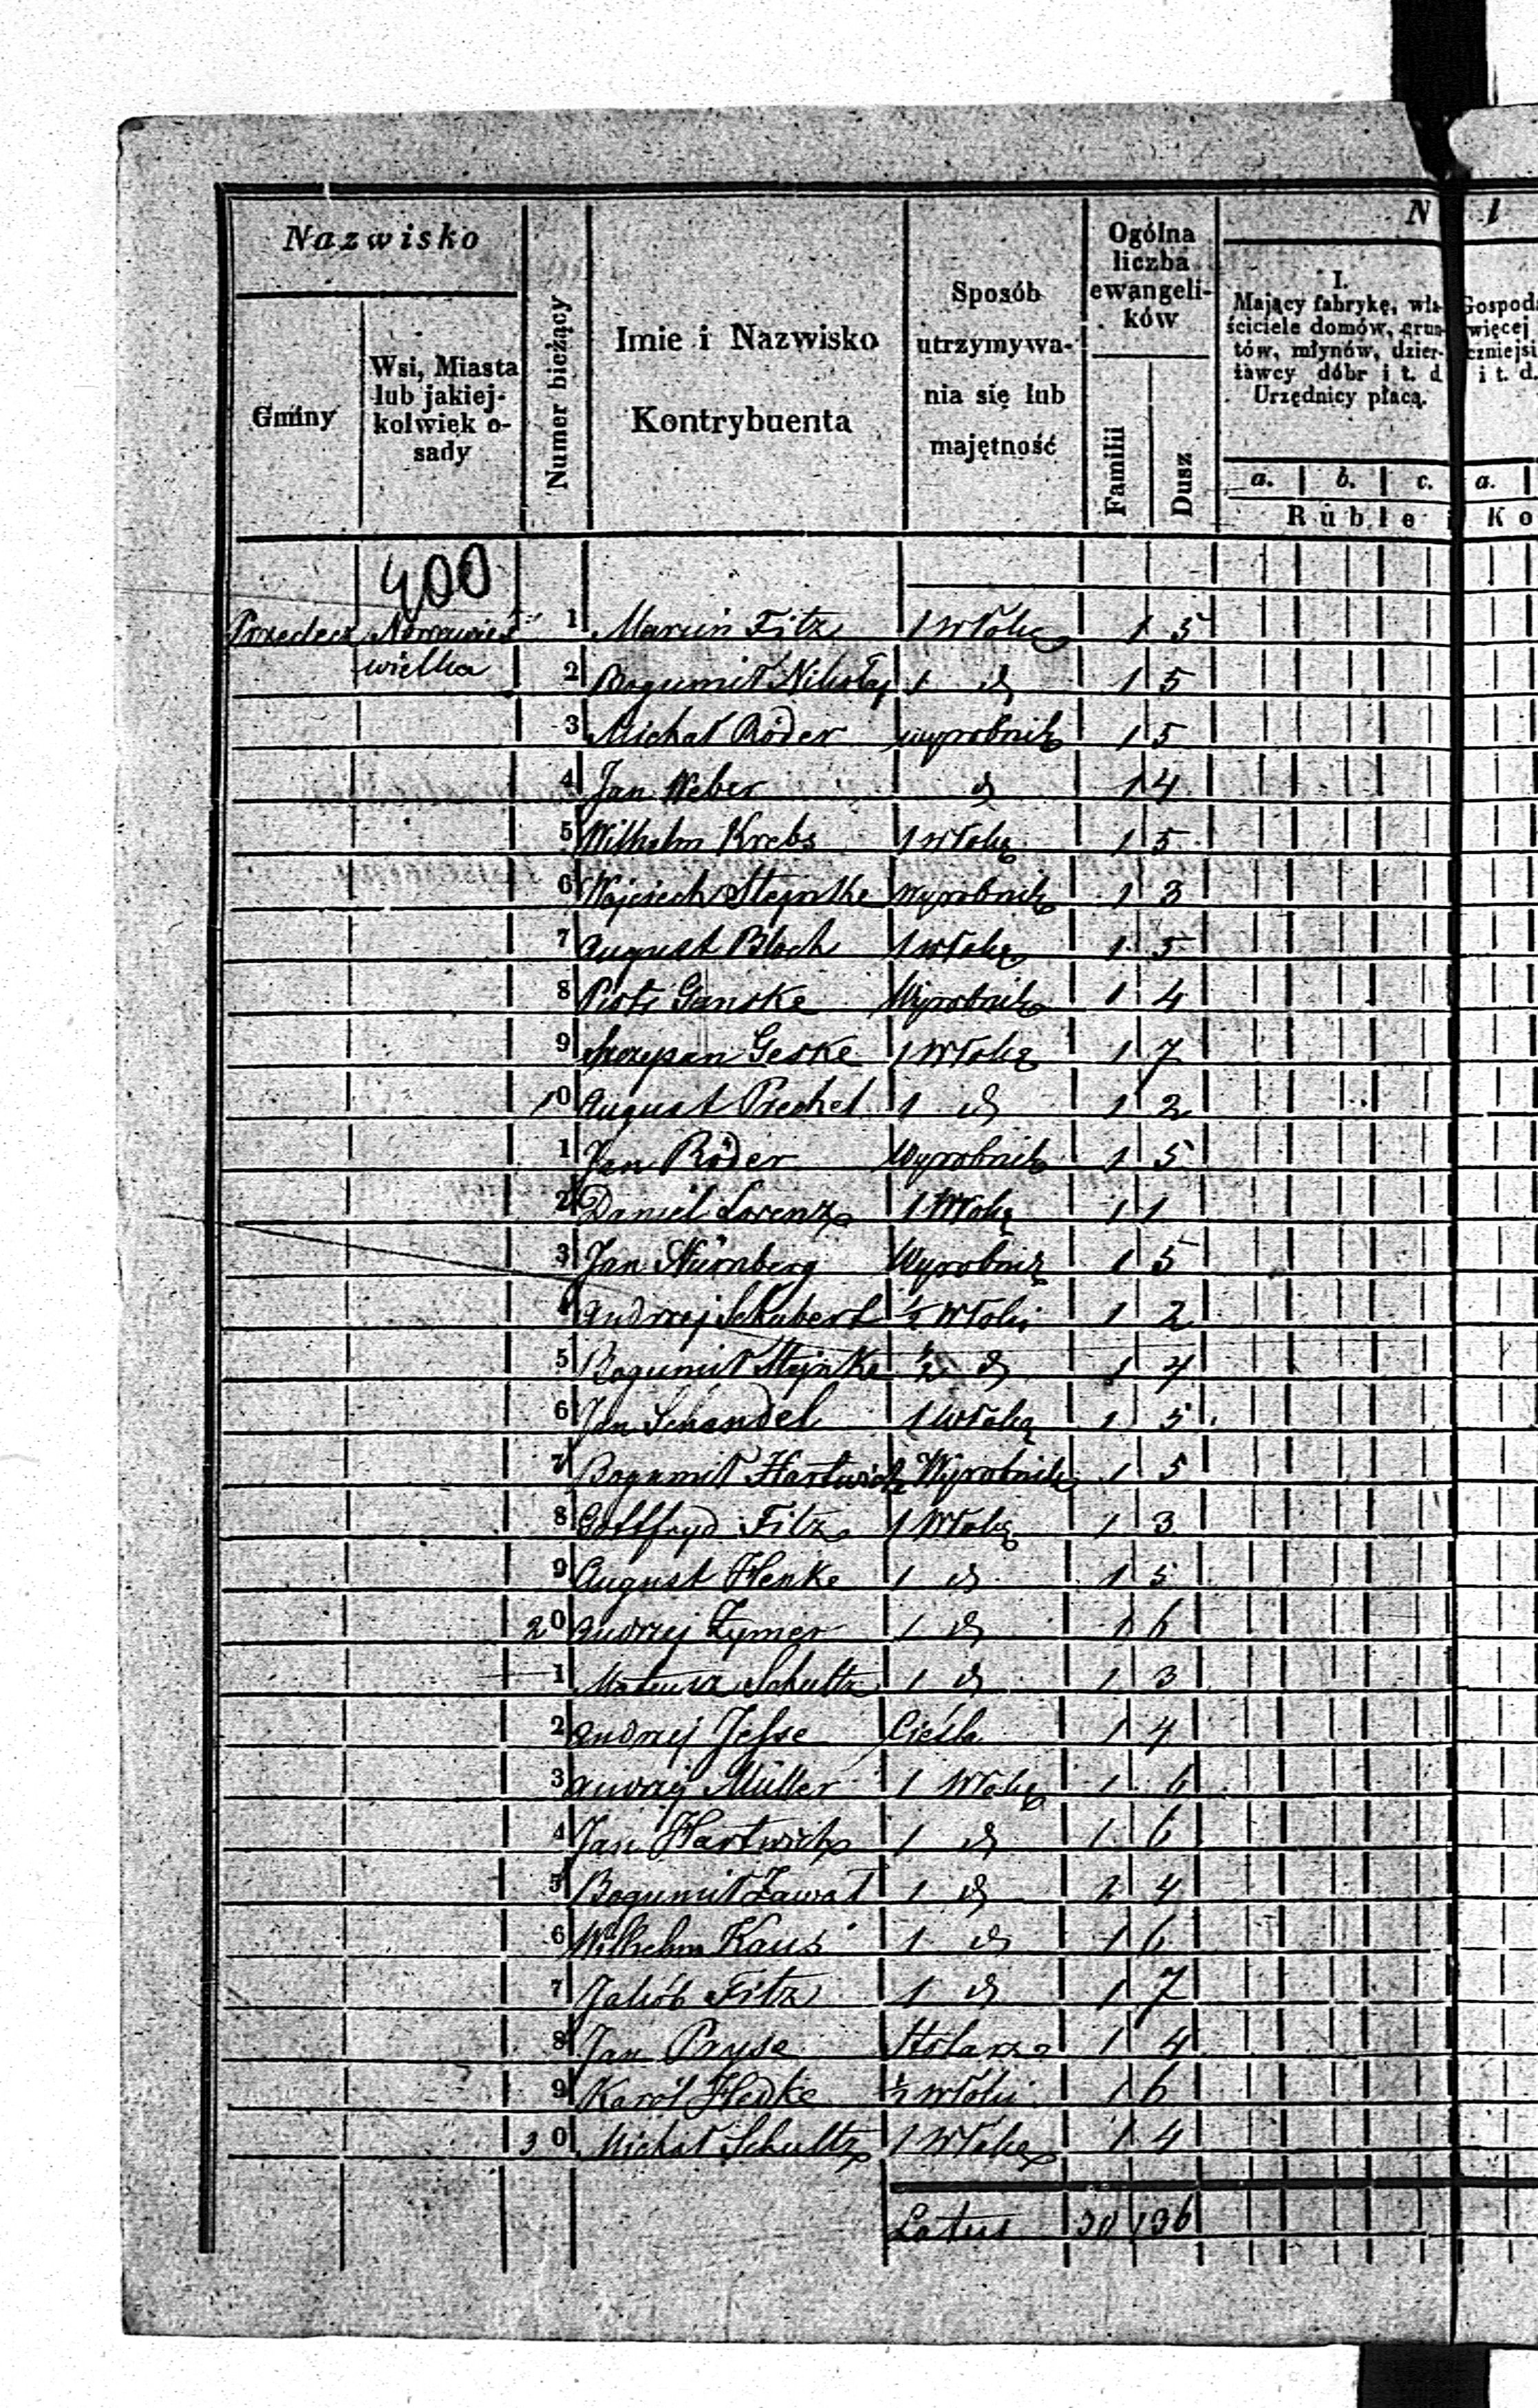 Nazwisko
Gminy
Wsi, Miasta
lub jakiej-
kolwiek o-
sady
Numer bieżący
Imie i Nazwisko
Kontrybuenta
Sposób
utrzymywa-
nia się lub
majętność
Ogólna
liczba
ewangeli-
ków
Familii
Dusz
N
I.
Mający fabrykę, wła-
ściciele domów, grun-
tów, młynów, dzier-
żawcy dóbr i t. d
Urzędnicy płacą.
a. b. c.
Ruble
l
Gospod
więcej
czniejsi
i t. d.
a.
Ko
400
Przedecz Nowawieś 1 Marcin Fitz 1 włokę 1 5
wielka 2 Bogumił Nikołaj 1 d 1 5
3 Michał Röder wyrobnik 1 5
4 Jan Weber d 1 4
5 Wilhelm Krebs 1 włokę 1 5
6 Wojciech Stejnke Wyrobnik 1 3
7 August Bloch 1 włokę 1 5
8 Piotr Ganske Wyrobnik 1 4
9 Szczepan Geske 1 Włokę 1 7
10 August Prechel 1 d 1 2
1 Jan Röder Wyrobnik 1 5
2 Daniel Lorenz 1 Włokę 1 1
3 Jan Nürnberg Wyrobnik 1 5
4 Andrzej Schubert ½ Włoki 1 2
5 Bogumił Stejnke ½ d 1 4
6 Jan Schandel 1 Włokę 1 5
7 Bogumił Hartwich Wyrobnik 1 5
8 Gottfryd Fitz 1 Włokę 1 3
9 August Henke 1 d 1 5
20 Andrzej Zymer 1 d 1 6
1 Mateusz Schultz 1 d 1 3
2 Andrzej Jesse Cieśla 1 4
3 Andrzej Müller 1 Włokę 1 6
4 Jan Hartwich 1 d 1 6
5 Bogumił Zawał 1 d 1 4
6 Wilhelm Kaus 1 d 1 6
7 Jakób Fitz 1 d 1 7
8 Jan Pryse Stolarz 1 4
9 Karól Hedke ½ włoki 1 6
30 Michał Schultz 1 Włokę 1 4
Latus 30 136